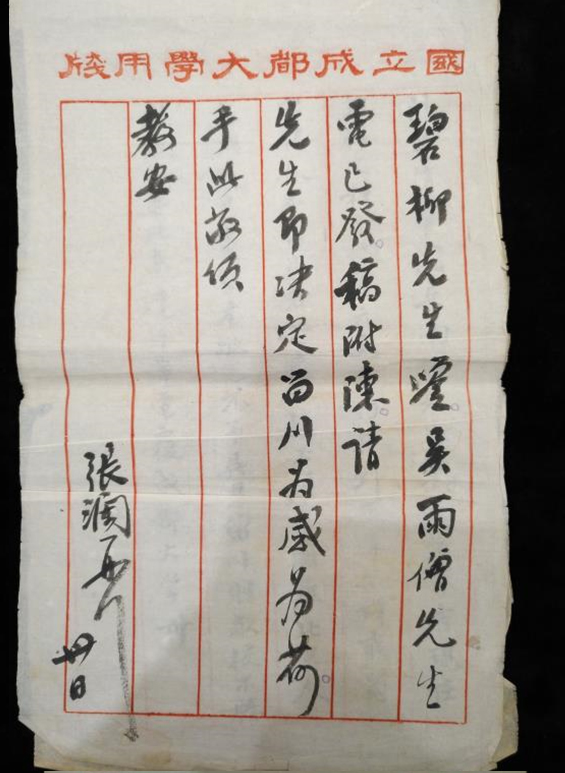 國立成都大學用牋
碧柳先生鑒。吳雨僧先生
電已發。稿附陳。請
先生即决定留川为感为荷。
手此敬頌
教安
張瀾
卅日